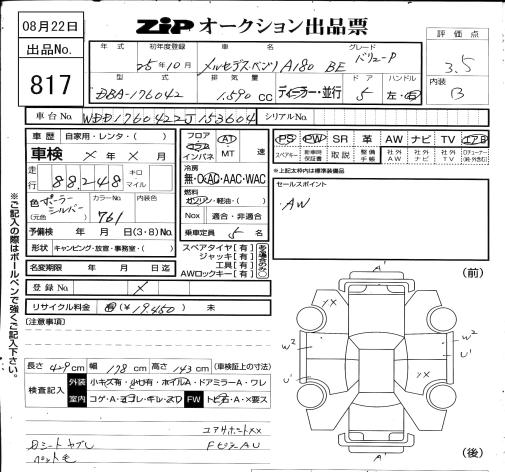 08月22日
ZIP オークション出品票
出品No.
817
年式 初年度登録 車名 グレード
25年10月 メルセデス・ベンツ A180 BE バリューP
型式 排気量 ドア ハンドル
DBA-176042 1.590cc ディーラー・並行 5 左・右
評価点
3.5
内装
B
車台No. WDD1760422J153604 シリアルNo.
車歴 自家用・レンタ・( )
車検 × 年 × 月
走行 88.248 キロ マイル
色 ポーラーシルバー カラーNo. 761 内装色
(元色)
予備検 年 月 日(3・8)No.
形状 キャンピング・放宣・事務室・( )
名変期限 年 月 日迄
登録No. ×
リサイクル料金 (¥19.450) 未
フロア AT 速
コラム
インパネ ・MT
冷房
無・C・AC・AAC・WAC
燃料
ガソリン・軽油・( )
Nox 適合・非適合
乗車定員 5 名
スペアタイヤ[有]
ジャッキ[有]
工具[有]
AWロックキー[有]
PS PW SR 革 AW ナビ TV エアB
スペアキー 新車時保証書 取説 整備手帳 社外AW 社外ナビ 社外TV
※上記太枠内は標準装備品
セールスポイント
・AW
※ご記入の際はボールペンで強くご記入下さい。
[注意事項]
長さ 429cm 幅 178cm 高さ 143cm (車検証上の寸法)
検査記入 外装 小キズ有・小凹有・ホイルA・ドアミラーA・ワレ
室内 コゲ・A・ヨゴレ・キレ・スレ FW トビ石・A・×要ス
Dシートヤブレ
ペット毛
コアサポートXX
FビジAU
(前)
A'
YX
W2
U'
W2
U'
YX
A'
(後)